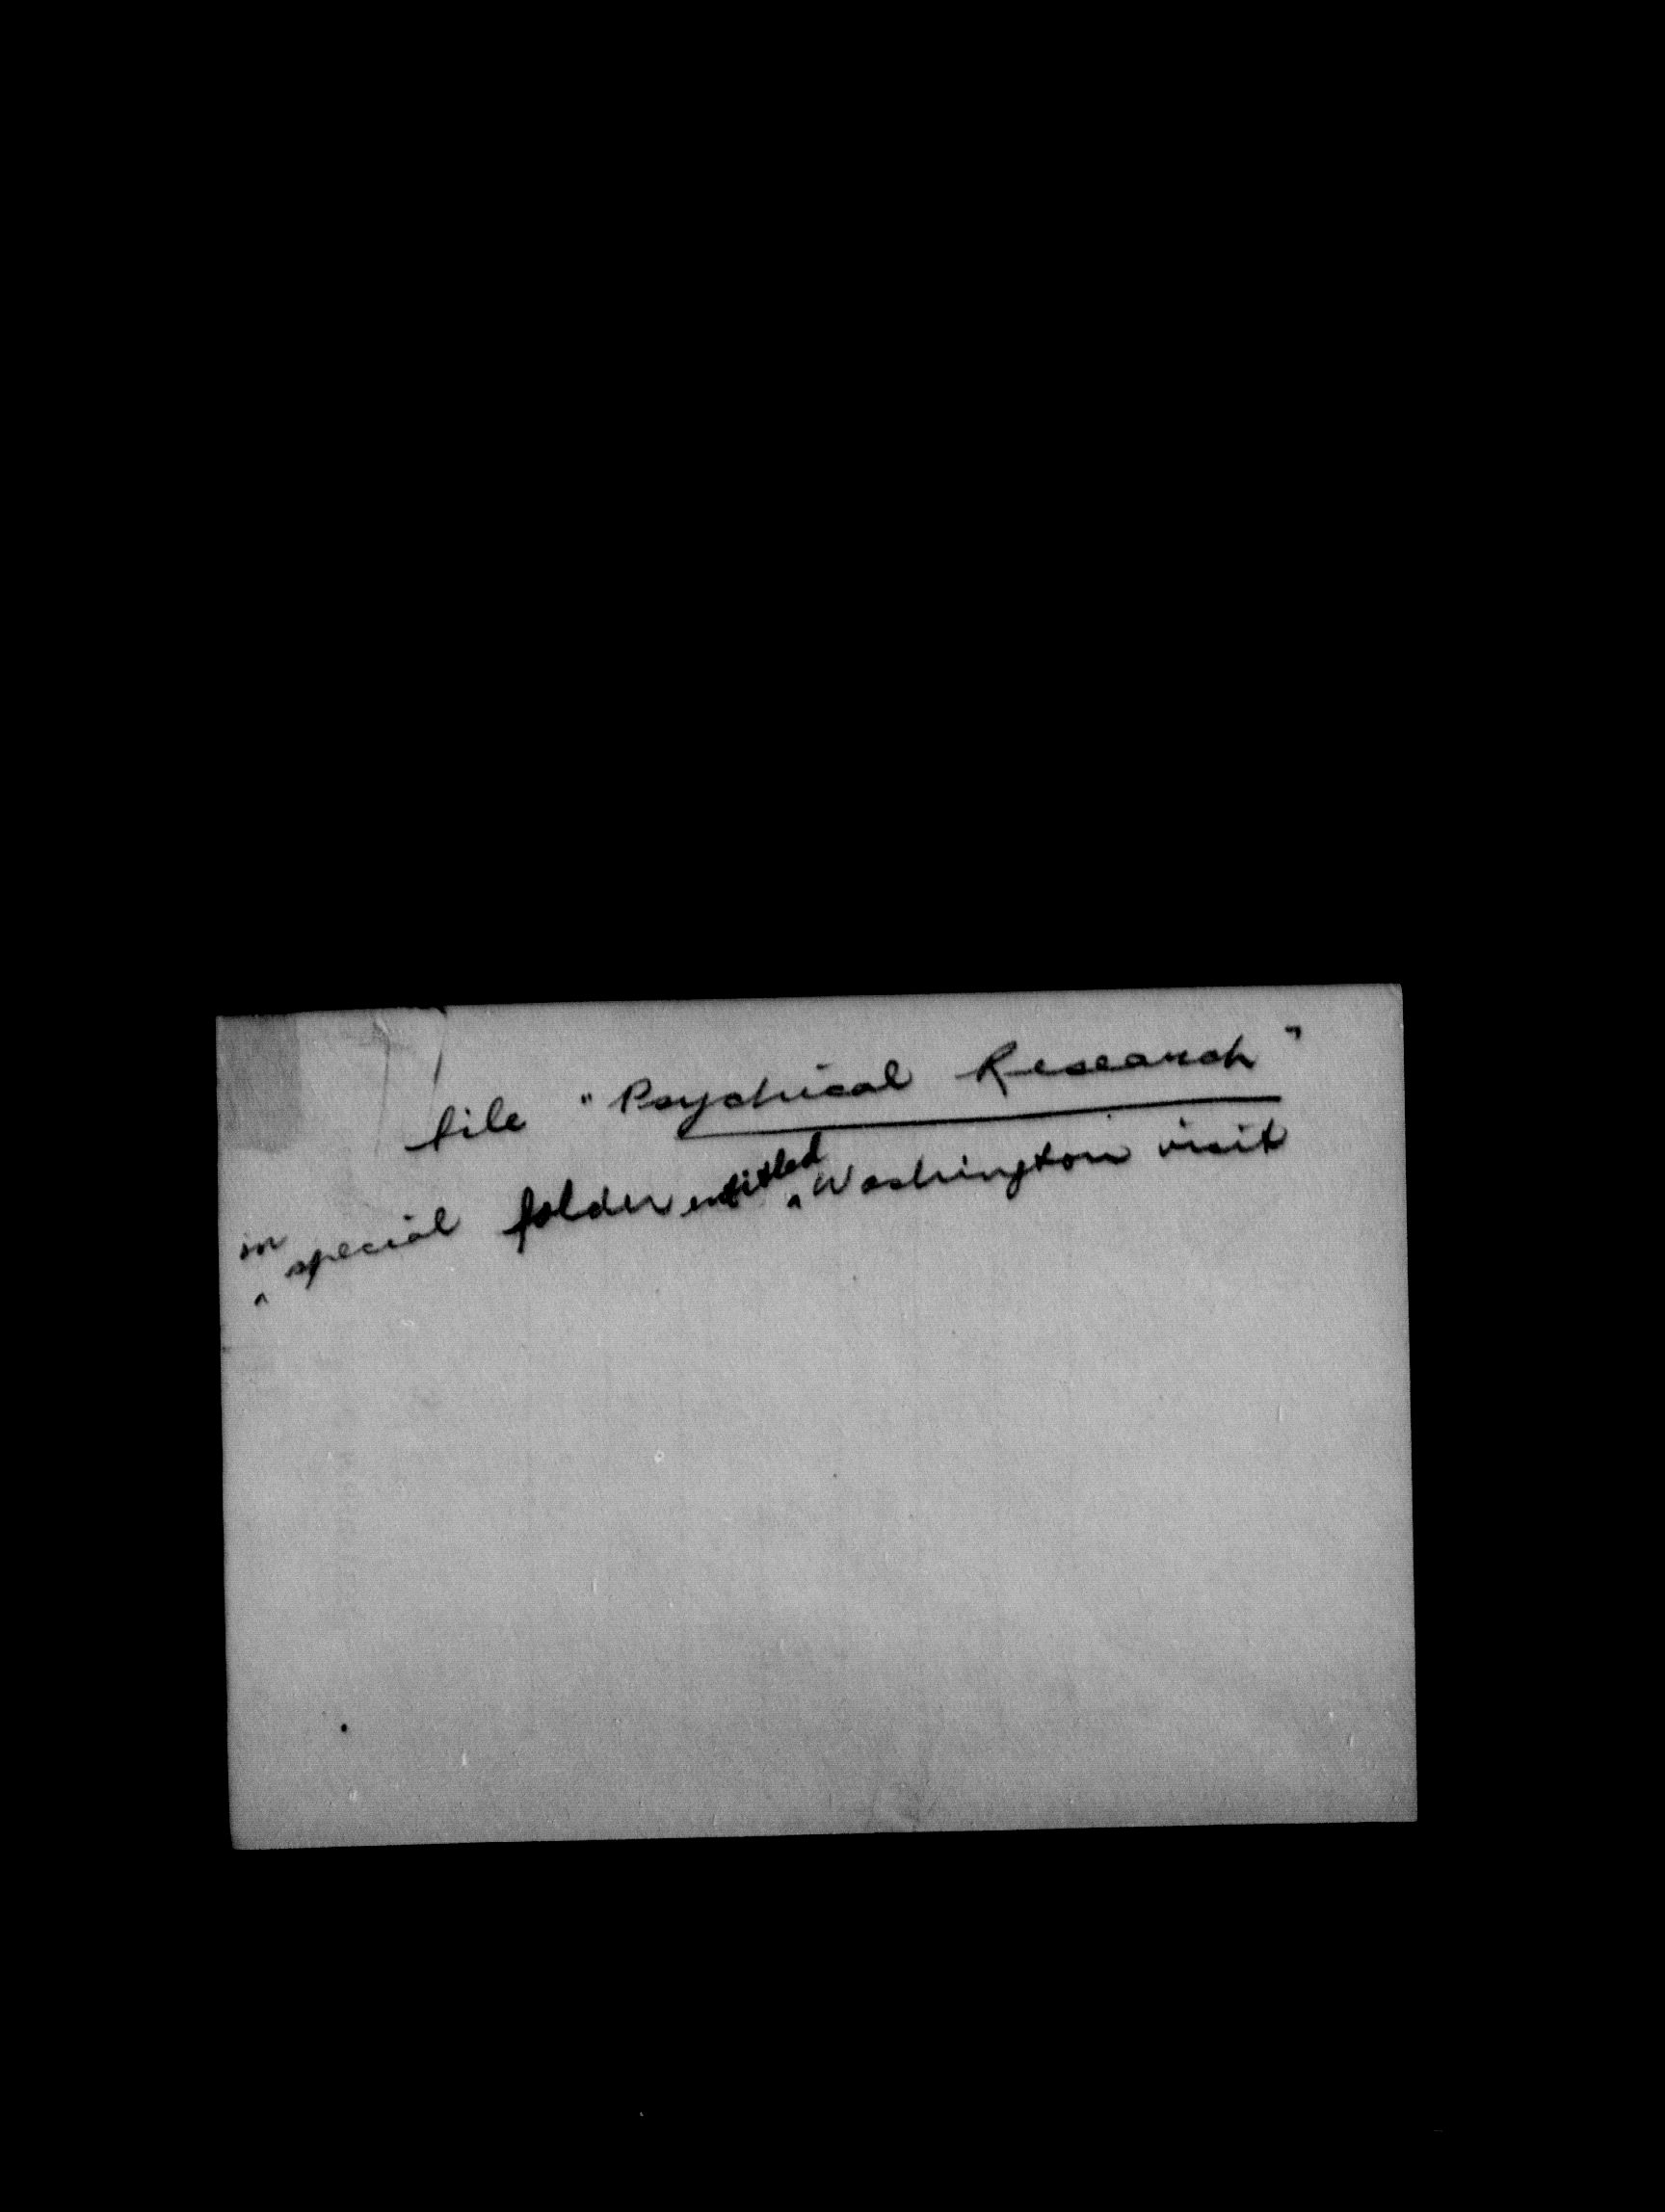 file "Psychical Research"
in special folder entitled Washington visit